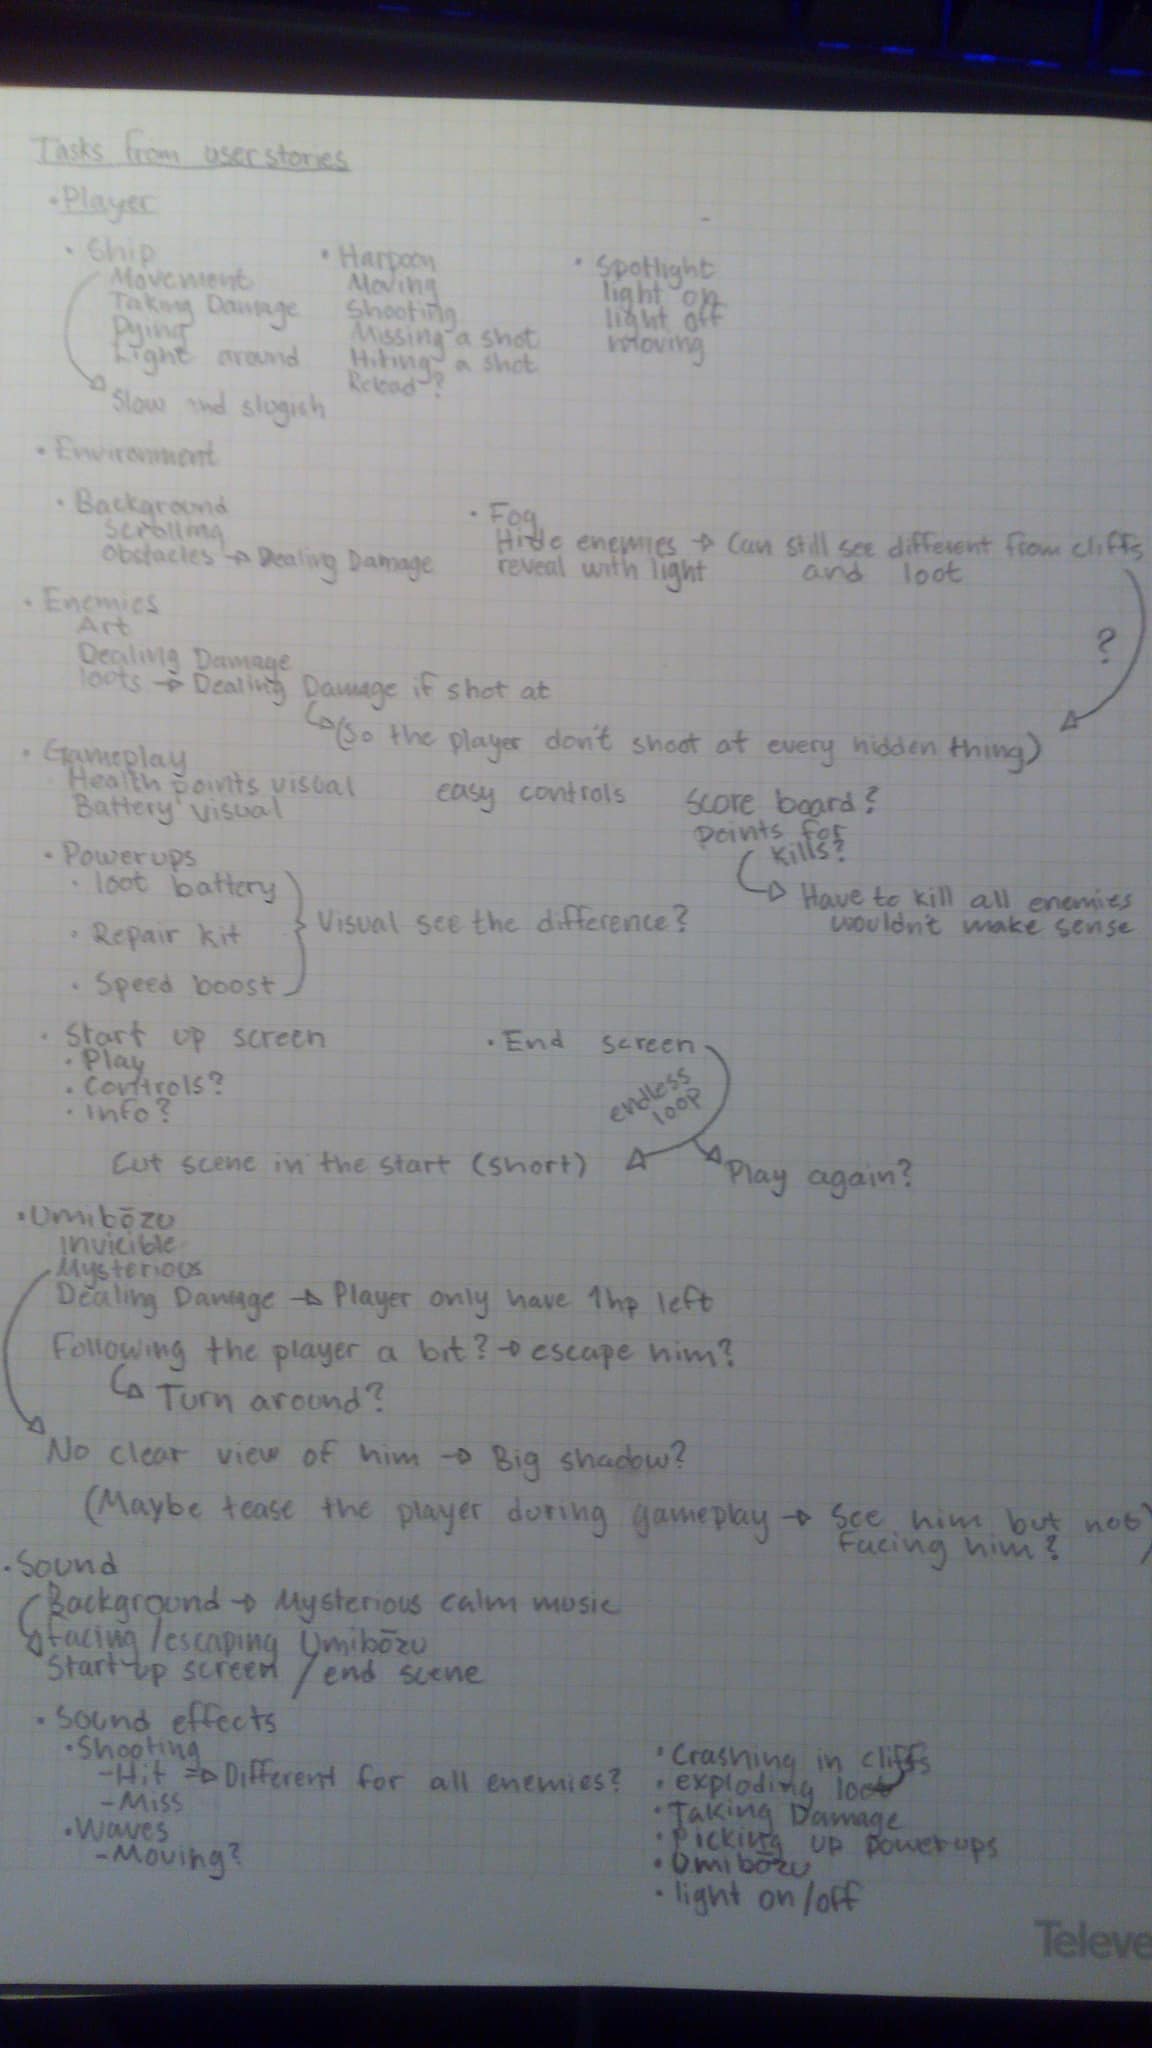 Tasks from user stories
• Player
• Ship
Movement
Taking Damage
Dying
Light around
Slow and slugish
• Harpoon
Moving
Shooting
Missing a shot
Hitting a shot
Reload?
• Spotlight
light on
light off
moving
• Environment
• Background
Scrolling
Obstacles → Dealing Damage
• Fog
Hide enemies → Can still see different from cliffs
reveal with light and loot
?
• Enemies
Art
Dealing Damage
loots → Dealing Damage if shot at
↳ (so the player don't shoot at every hidden thing)
• Gameplay
Health points visual
Battery visual
easy controls
Score board?
Points for
kills?
↳ Have to kill all enemies
wouldn't make sense
• Powerups
• loot battery
• Repair kit
• Speed boost
Visual see the difference?
• Start up screen
• Play
• Controls?
• Info?
• End screen
endless
loop
Cut scene in the start (short)
Play again?
• Umibōzu
Invicible
Mysterious
Dealing Damage → Player only have 1hp left
Following the player a bit? → escape him?
↳ Turn around?
No clear view of him → Big shadow?
(Maybe tease the player during gameplay → See him but not
facing him?)
• Sound
Background → Mysterious calm music
Facing/escaping Umibōzu
Start-up screen / end scene
• Sound effects
• Shooting
- Hit ⇒ Different for all enemies?
- Miss
• Waves
- Moving?
• Crashing in cliffs
• exploding loot
• Taking Damage
• Picking up powerups
• Umibōzu
• light on/off
Televe